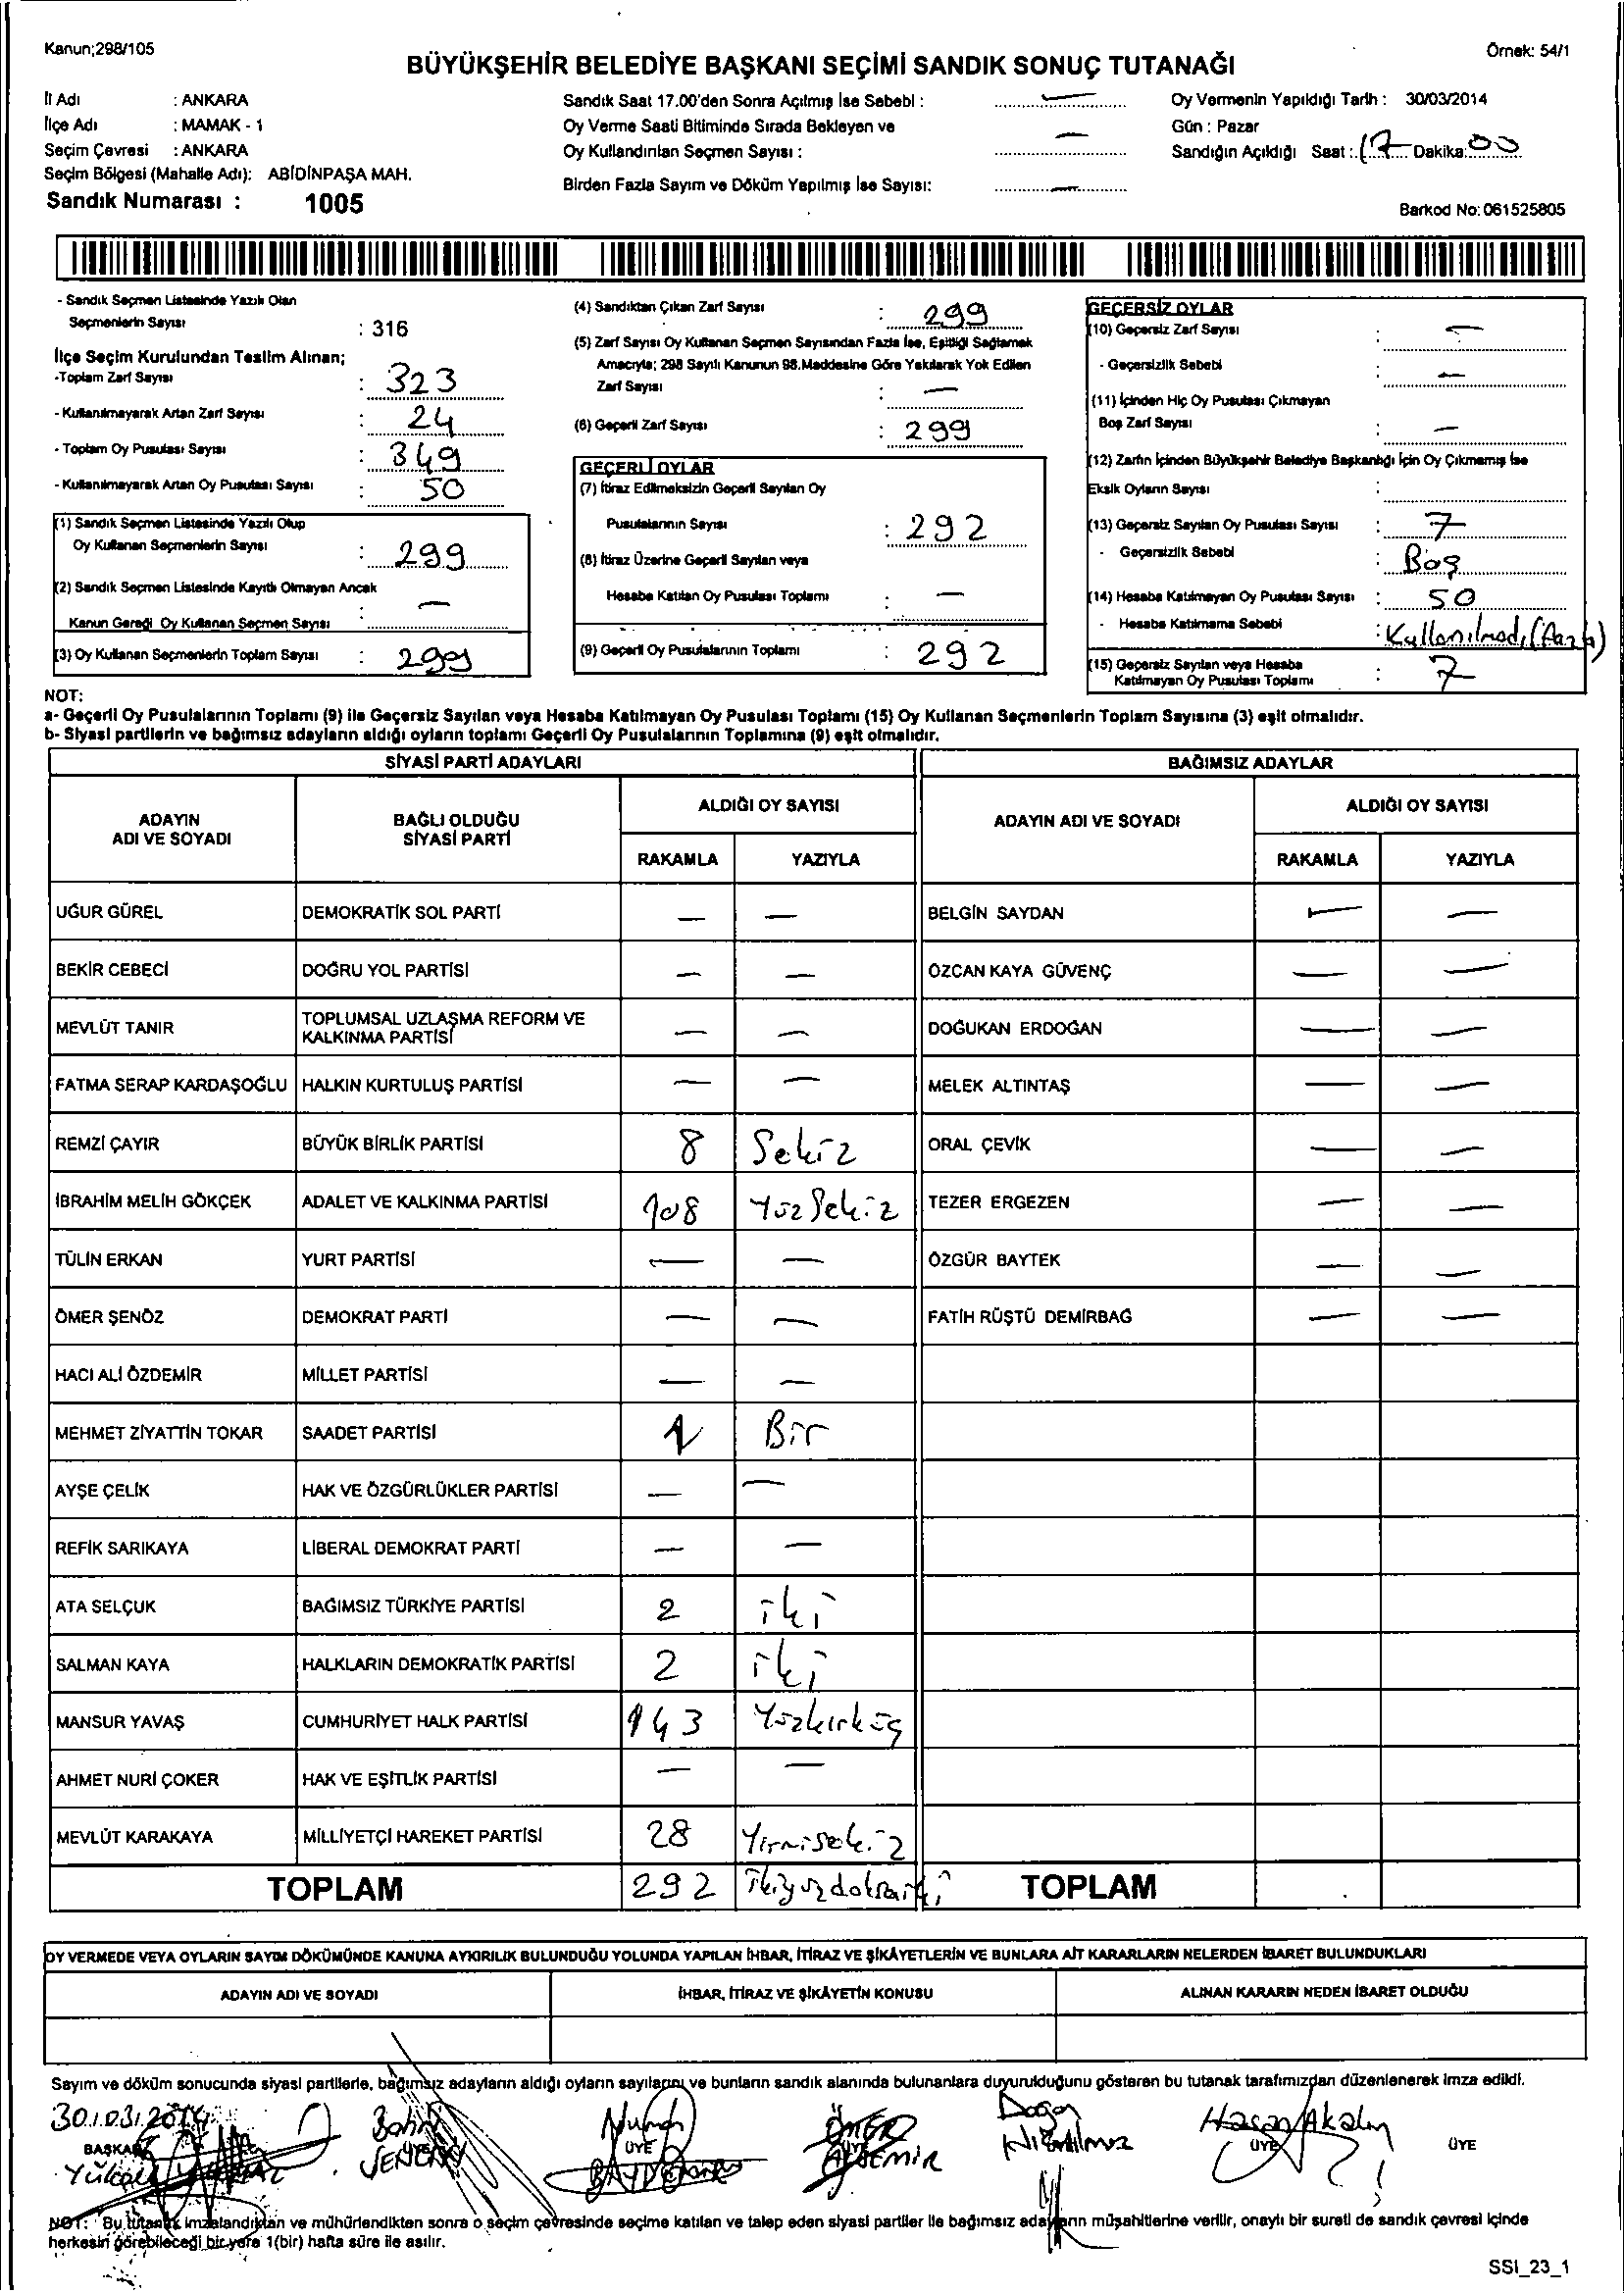 Kanun;298/105
Örnek: 54/1
BÜYÜKŞEHİR BELEDİYE BAŞKANI SEÇİMİ SANDIK SONUÇ TUTANAĞI
İl Adı : ANKARA
İlçe Adı : MAMAK - 1
Seçim Çevresi : ANKARA
Seçim Bölgesi (Mahalle Adı): ABİDİNPAŞA MAH.
Sandık Numarası : 1005
Sandık Saat 17.00'den Sonra Açılmış İse Sebebi : —
Oy Verme Saati Bitiminde Sırada Bekleyen ve
Oy Kullandırılan Seçmen Sayısı : —
Birden Fazla Sayım ve Döküm Yapılmış İse Sayısı: —
Oy Vermenin Yapıldığı Tarih : 30/03/2014
Gün : Pazar
Sandığın Açıldığı Saat : 17 Dakika: 00
Barkod No: 061525805
- Sandık Seçmen Listesinde Yazılı Olan
Seçmenlerin Sayısı : 316
İlçe Seçim Kurulundan Teslim Alınan;
-Toplam Zarf Sayısı : 323
- Kullanılmayarak Artan Zarf Sayısı : 24
- Toplam Oy Pusulası Sayısı : 349
- Kullanılmayarak Artan Oy Pusulası Sayısı : 50
(1) Sandık Seçmen Listesinde Yazılı Olup
Oy Kullanan Seçmenlerin Sayısı : 299
(2) Sandık Seçmen Listesinde Kayıtlı Olmayan Ancak
Kanun Gereği Oy Kullanan Seçmen Sayısı : —
(3) Oy Kullanan Seçmenlerin Toplam Sayısı : 299
(4) Sandıktan Çıkan Zarf Sayısı : 299
(5) Zarf Sayısı Oy Kullanan Seçmen Sayısından Fazla İse, Eşitliği Sağlamak
Amacıyla; 298 Sayılı Kanunun 98.Maddesine Göre Yakılarak Yok Edilen
Zarf Sayısı : —
(6) Geçerli Zarf Sayısı : 299
GEÇERLİ OYLAR
(7) İtiraz Edilmeksizin Geçerli Sayılan Oy
Pusulalarının Sayısı : 292
(8) İtiraz Üzerine Geçerli Sayılan veya
Hesaba Katılan Oy Pusulası Toplamı : —
(9) Geçerli Oy Pusulalarının Toplamı : 292
GEÇERSİZ OYLAR
(10) Geçersiz Zarf Sayısı : —
- Geçersizlik Sebebi : —
(11) İçinden Hiç Oy Pusulası Çıkmayan
Boş Zarf Sayısı : —
(12) Zarfın İçinden Büyükşehir Belediye Başkanlığı İçin Oy Çıkmamış İse
Eksik Oyların Sayısı :
(13) Geçersiz Sayılan Oy Pusulası Sayısı : 7
- Geçersizlik Sebebi : Boş
(14) Hesaba Katılmayan Oy Pusulası Sayısı : 50
- Hesaba Katılmama Sebebi : Kullanılmadı (Fazla)
(15) Geçersiz Sayılan veya Hesaba
Katılmayan Oy Pusulası Toplamı : 7
NOT:
a- Geçerli Oy Pusulalarının Toplamı (9) ile Geçersiz Sayılan veya Hesaba Katılmayan Oy Pusulası Toplamı (15) Oy Kullanan Seçmenlerin Toplam Sayısına (3) eşit olmalıdır.
b- Siyasi partilerin ve bağımsız adayların aldığı oyların toplamı Geçerli Oy Pusulalarının Toplamına (9) eşit olmalıdır.
SİYASİ PARTİ ADAYLARI BAĞIMSIZ ADAYLAR
ADAYIN ADI VE SOYADI BAĞLI OLDUĞU SİYASİ PARTİ ALDIĞI OY SAYISI ADAYIN ADI VE SOYADI ALDIĞI OY SAYISI
RAKAMLA YAZIYLA RAKAMLA YAZIYLA
UĞUR GÜREL DEMOKRATİK SOL PARTİ — — BELGİN SAYDAN — —
BEKİR CEBECİ DOĞRU YOL PARTİSİ — — ÖZCAN KAYA GÜVENÇ — —
MEVLÜT TANIR TOPLUMSAL UZLAŞMA REFORM VE KALKINMA PARTİSİ — — DOĞUKAN ERDOĞAN — —
FATMA SERAP KARDAŞOĞLU HALKIN KURTULUŞ PARTİSİ — — MELEK ALTINTAŞ — —
REMZİ ÇAYIR BÜYÜK BİRLİK PARTİSİ 8 Sekiz ORAL ÇEVİK — —
İBRAHİM MELİH GÖKÇEK ADALET VE KALKINMA PARTİSİ 108 Yüz Sekiz TEZER ERGEZEN — —
TÜLİN ERKAN YURT PARTİSİ — — ÖZGÜR BAYTEK — —
ÖMER ŞENÖZ DEMOKRAT PARTİ — — FATİH RÜŞTÜ DEMİRBAĞ — —
HACI ALİ ÖZDEMİR MİLLET PARTİSİ — —
MEHMET ZİYATTİN TOKAR SAADET PARTİSİ 1 Bir
AYŞE ÇELİK HAK VE ÖZGÜRLÜKLER PARTİSİ — —
REFİK SARIKAYA LİBERAL DEMOKRAT PARTİ — —
ATA SELÇUK BAĞIMSIZ TÜRKİYE PARTİSİ 2 iki
SALMAN KAYA HALKLARIN DEMOKRATİK PARTİSİ 2 iki
MANSUR YAVAŞ CUMHURİYET HALK PARTİSİ 143 Yüzkırküç
AHMET NURİ ÇOKER HAK VE EŞİTLİK PARTİSİ — —
MEVLÜT KARAKAYA MİLLİYETÇİ HAREKET PARTİSİ 28 Yirmisekiz
TOPLAM 292 ikiyüzdoksaniki TOPLAM
OY VERMEDE VEYA OYLARIN SAYIM DÖKÜMÜNDE KANUNA AYKIRILIK BULUNDUĞU YOLUNDA YAPILAN İHBAR, İTİRAZ VE ŞİKÂYETLERİN VE BUNLARA AİT KARARLARIN NELERDEN İBARET BULUNDUKLARI
ADAYIN ADI VE SOYADI İHBAR, İTİRAZ VE ŞİKÂYETİN KONUSU ALINAN KARARIN NEDEN İBARET OLDUĞU
Sayım ve döküm sonucunda siyasi partilerle, bağımsız adayların aldığı oyların sayılarını ve bunların sandık alanında bulunanlara duyurulduğunu gösteren bu tutanak tarafımızdan düzenlenerek imza edildi.
30.03.2014
BAŞKAN ÜYE ÜYE ÜYE ÜYE ÜYE
Hasan Akalın
NOT: Bu tutanak imzalandıktan ve mühürlendikten sonra o seçim çevresinde seçime katılan ve talep eden siyasi partiler ile bağımsız adayların müşahitlerine verilir, onaylı bir sureti de sandık çevresi içinde
herkesin görebileceği bir yere 1(bir) hafta süre ile asılır.
SSI_23_1